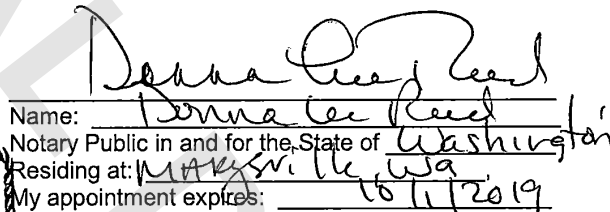 Donna Lee Reed
Name: Donna Lee Reed
Notary Public in and for the State of Washington
Residing at: MARYSville, Wa
My appointment expires: 10/1/2019